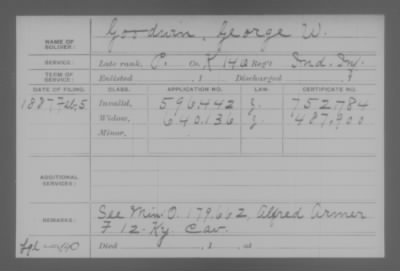 NAME OF SOLDIER: Goodwin, George W.
SERVICE: Late rank, P. Co. K 146 Reg't Ind. Inf.
TERM OF SERVICE: Enlisted , 1 Discharged , 1
DATE OF FILING. CLASS. APPLICATION NO. LAW. CERTIFICATE NO.
1887 Feb, 5 Invalid, 596,442 J. 752,784
Widow, 640,136 J. 487,900
Minor,
ADDITIONAL SERVICES:
REMARKS: See Min. O. 179,662, Alfred Armer
F 12. Ky. Cav.
Died , 1 , at